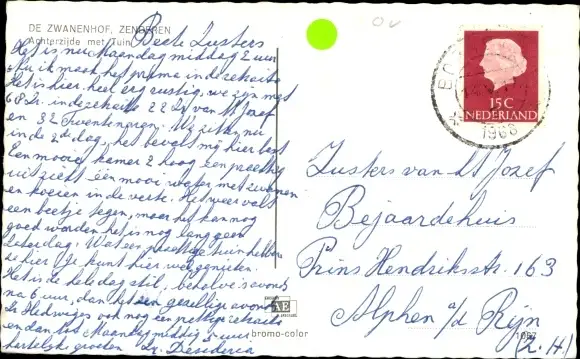 DE ZWANENHOF, ZENDEREN
Achterzijde met Tuin
Beste Zusters
Het is nu Maandag middag 2 uur
Nu ik maak het prima in de retraite
Het is hier heel erg rustig, we zijn met
68 Zr. in de retraite 22 Zr van St Jozef
en 32 Twentenaren. We zitten nu
in de 2e dag, het bevalt mij hier best
Een mooie kamer 2 hoog een prachtig
uitzicht één mooi water met zwanen
en koeien in de verte. Het weer valt
een beetje tegen, maar het kan nog
goed worden het is nog lang geen
Zaterdag. Wat een prachtige tuin hebben
ze hier Je kunt hier wel genieten.
Het is de hele dag stil, behalve 's avonds
na 6 uur, dan het een gezellige avond
Zr Hedwiges ook nog een prettige retraite
en dan tot Maandag middag 5 uur
hartelijke groeten Zr. Desideria
OV
15 C
NEDERLAND
1966
Zusters van St Jozef
Bejaardehuis
Prins Hendrikstr. 163
Alphen a/d Rijn
(Z.H)
AE
bromo-color